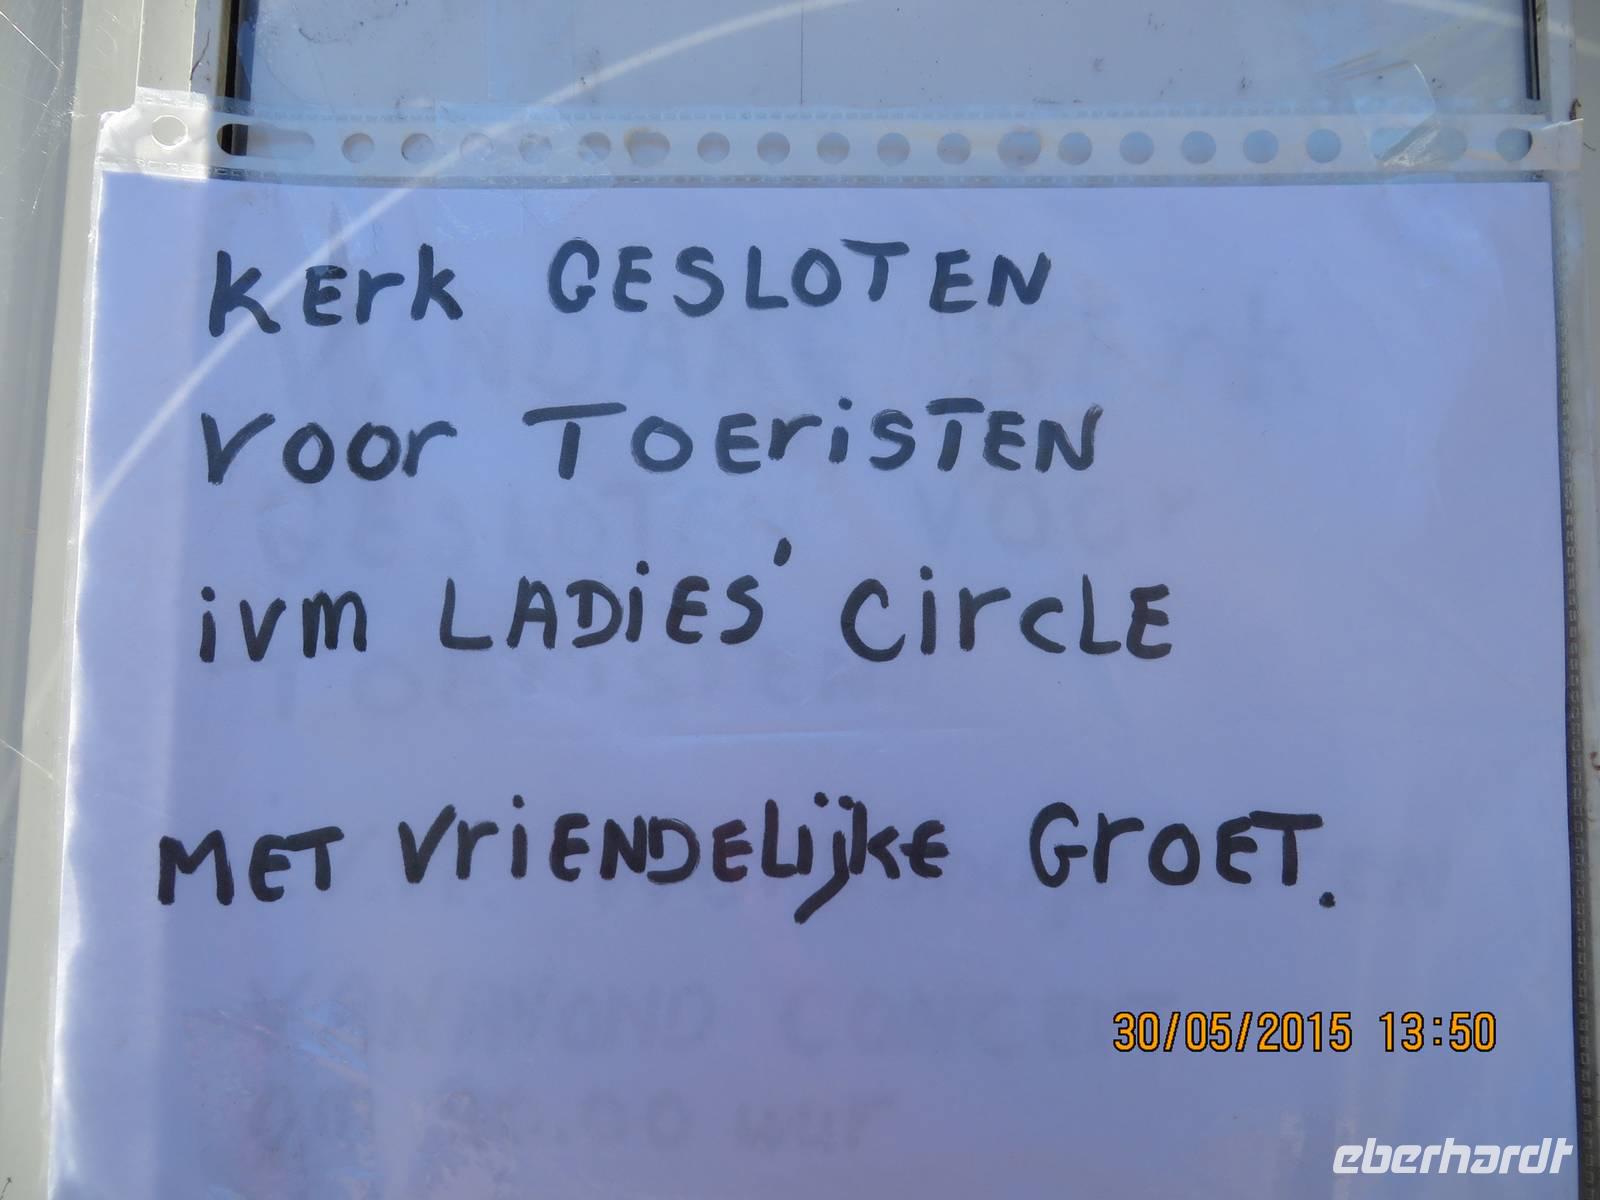 kErk GESLOTEN
voor TOEriSTEN
ivm LADiES' CircLE
MET vriENDELijkE GroET.
30/05/2015 13:50
eberhardt